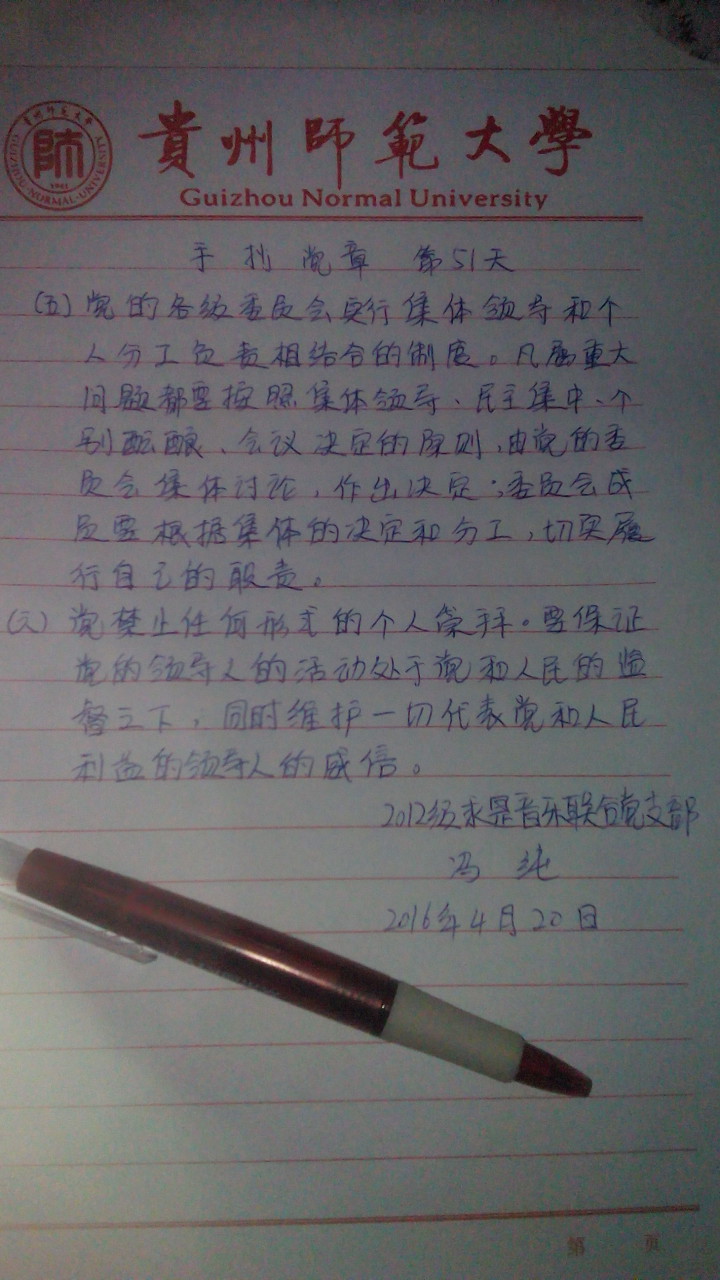 貴州師範大學
Guizhou Normal University
貴州師范大學
GUIZHOU·NORMAL·UNIVERSITY
1941
師
手抄党章 第51天
(五)党的各级委员会实行集体领导和个
人分工负责相结合的制度。凡属重大
问题都要按照集体领导、民主集中、个
别酝酿、会议决定的原则,由党的委
员会集体讨论,作出决定;委员会成
员要根据集体的决定和分工,切实履
行自己的职责。
(六)党禁止任何形式的个人崇拜。要保证
党的领导人的活动处于党和人民的监
督之下,同时维护一切代表党和人民
利益的领导人的威信。
2012级求是音乐联合党支部
冯纯
2016年4月20日
第 页